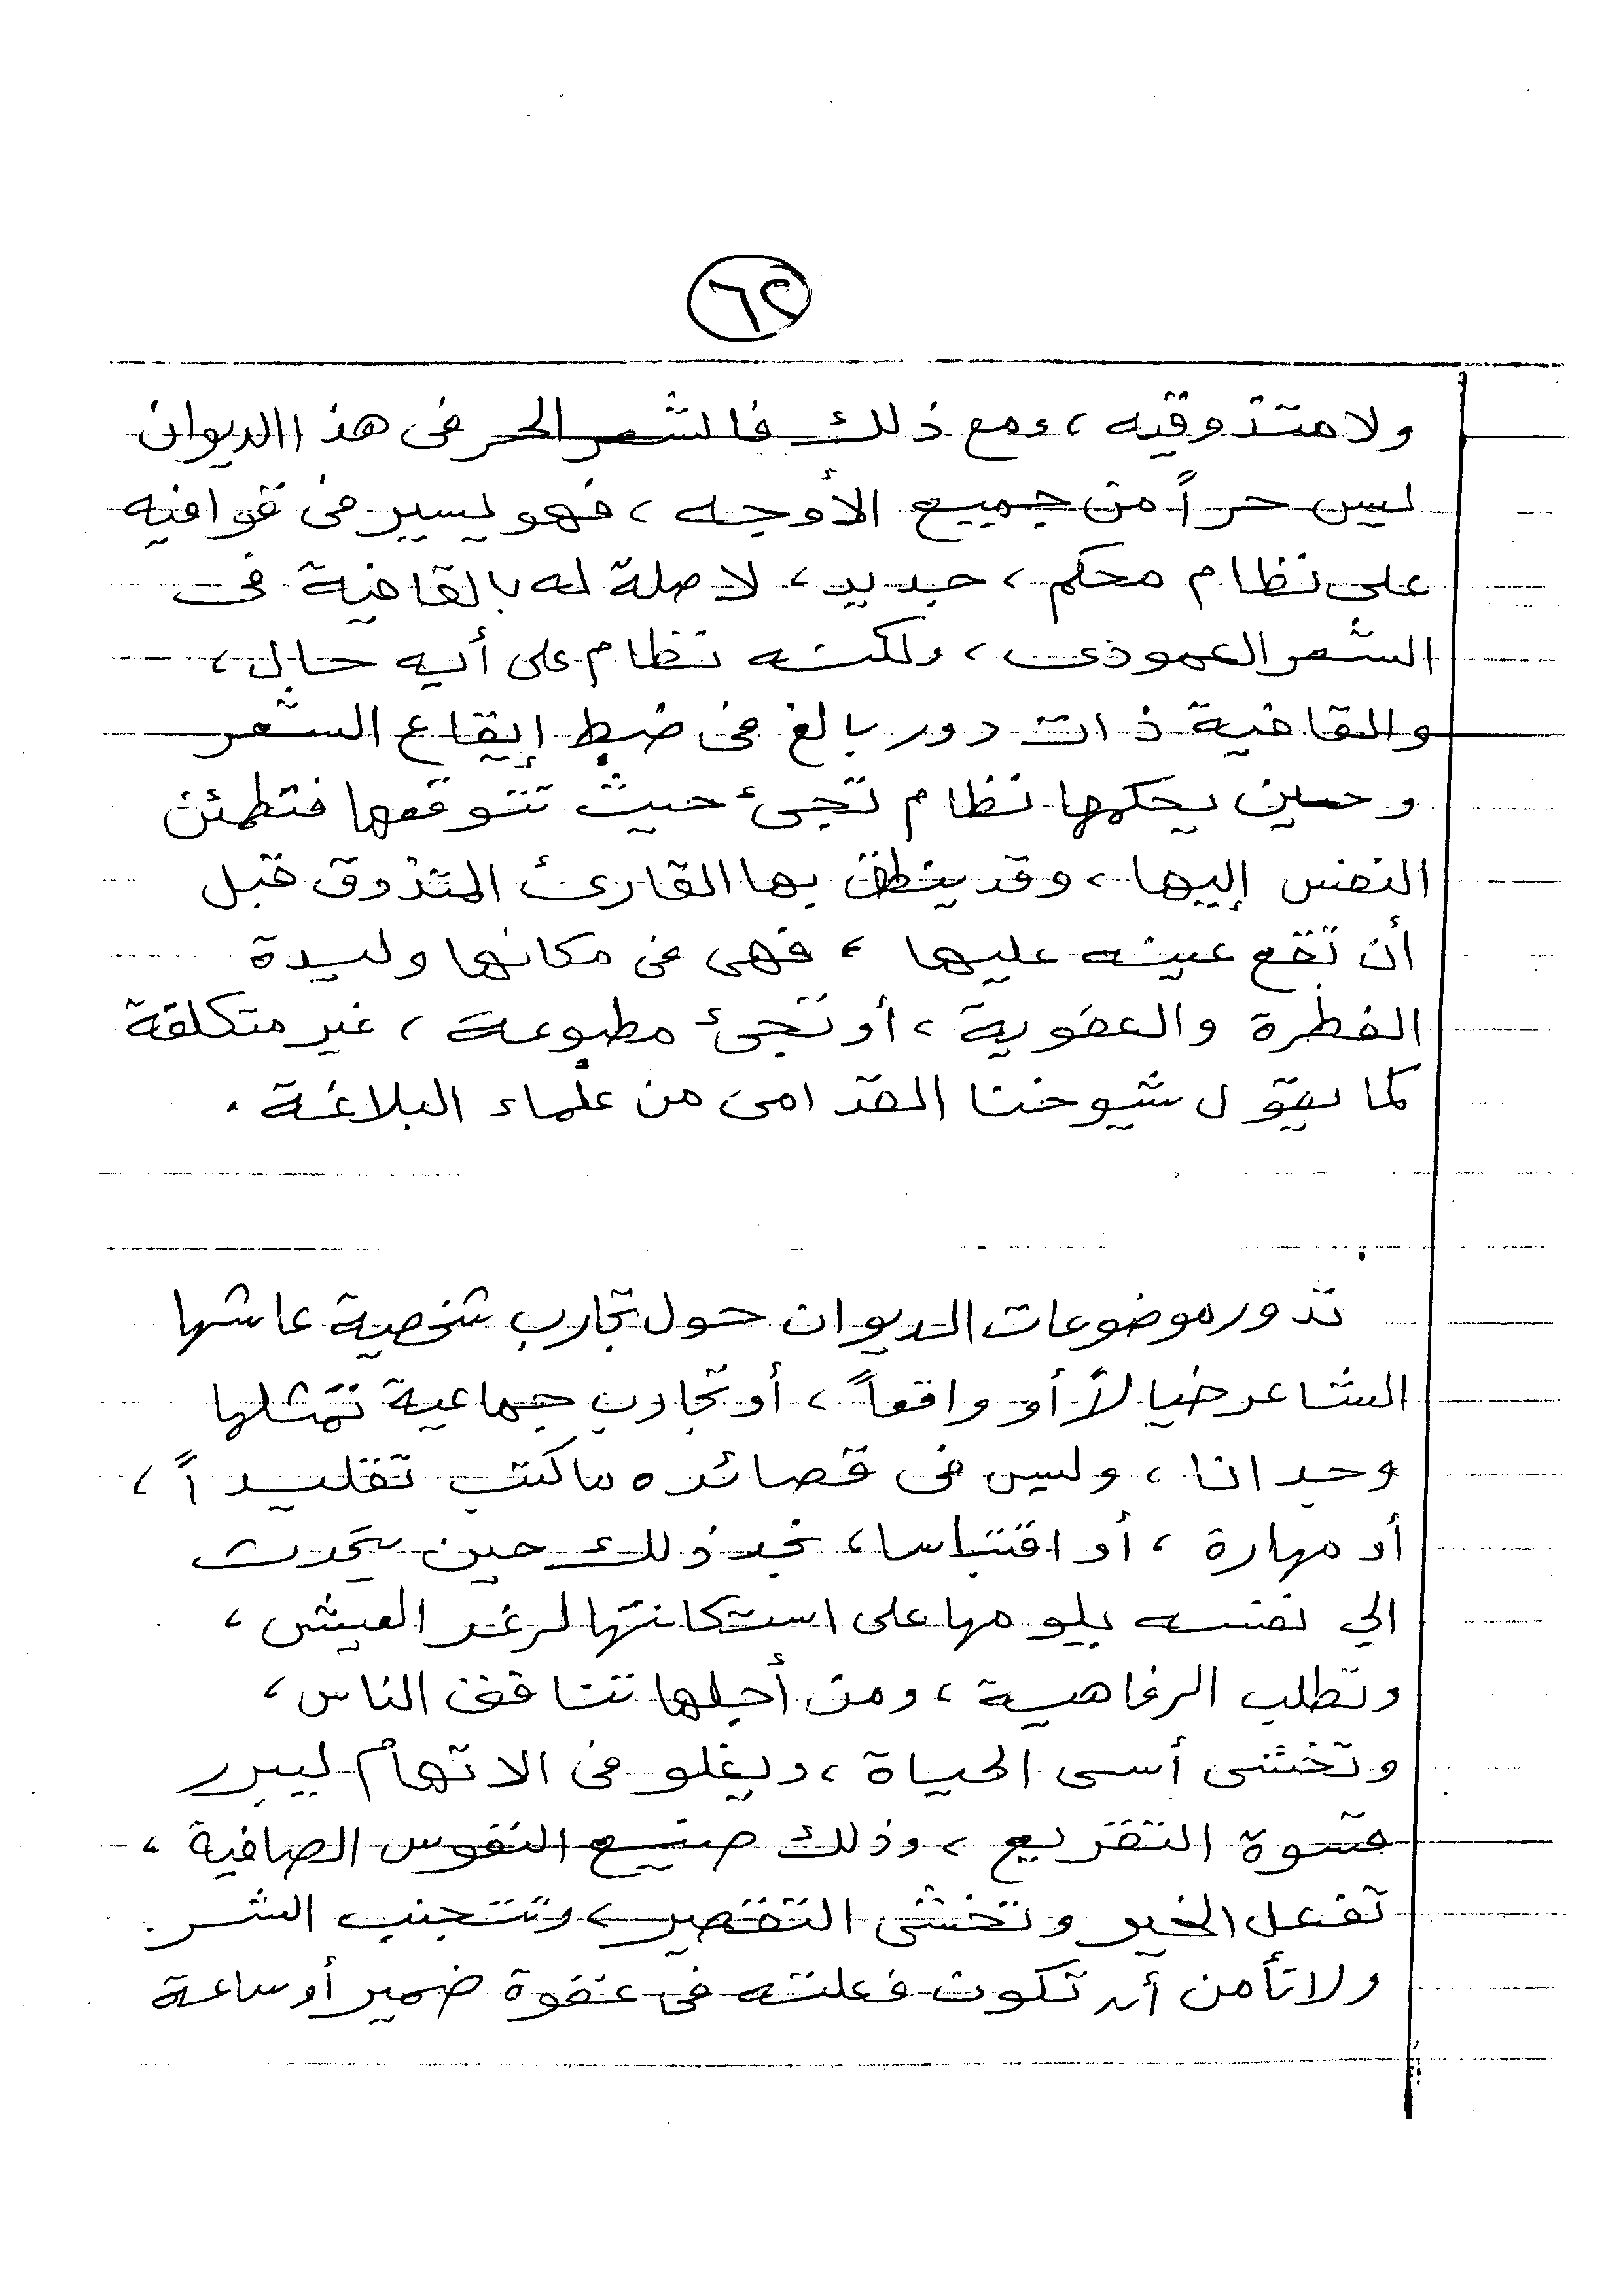 ٦٢
ولا متذوقيه ، ومع ذلك فالشعر الحر فى هذا الديوان
ليس حراً من جميع الأوجه ، فهو يسير فى قوافيه
على نظام محكم ، جديد ، لا صلة له بالقافية فى
الشعر العمودى ، ولكنه نظام على أيه حال ،
والقافية ذات دور بالغ فى ضبط إيقاع الشعر
وحين يحكمها نظام تجئ حيث تتوقعها فتطمئن
النفس إليها ، وقد ينطق بها القارئ المتذوق قبل
أن تقع عينه عليها ، فهى فى مكانها وليدة
الفطرة والعفوية ، أو تجئ مطبوعة ، غير متكلفة
كما يقول شيوخنا القدامى من علماء البلاغة .
تدور موضوعات الديوان حول تجارب شخصية عاشها
الشاعر خيالاً أو واقعاً ، أو تجارب جماعية تمثلها
وجدانا ، وليس فى قصائده ما كتب تقليداً ،
أو مهارة ، أو اقتباسا ، نجد ذلك حين يتحدث
الي نفسه يلومها على استكانتها لرغد العيش ،
وتطلب الرفاهية ، ومن أجلها تنافق الناس ،
وتخشى أسى الحياة ، ويغلو فى الاتهام ليبرر
قسوة التقريع ، وذلك صنيع النفوس الصافية ،
تفعل الخير وتخشى التقصير ، وتتجنب الشر .
ولا تأمن أن تكون فعلته فى غفوة ضمير أو ساعة